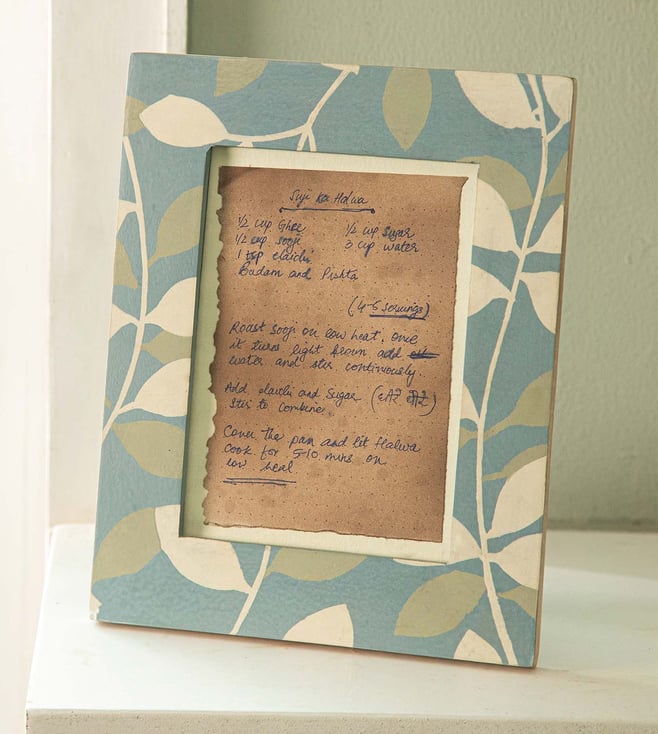 Suji ka Halwa
1/2 cup Ghee 1/2 cup sugar
1/2 cup sooji 3 cup water
1 tsp elaichi
Badam and Pishta
(4-6 servings)
Roast Sooji on low heat. once
it turns light brown add
water and stir continuously.
Add elaichi and Sugar (धीरे धीरे)
stir to combine.
Cover the pan and let Halwa
cook for 5-10 mins on
low heat